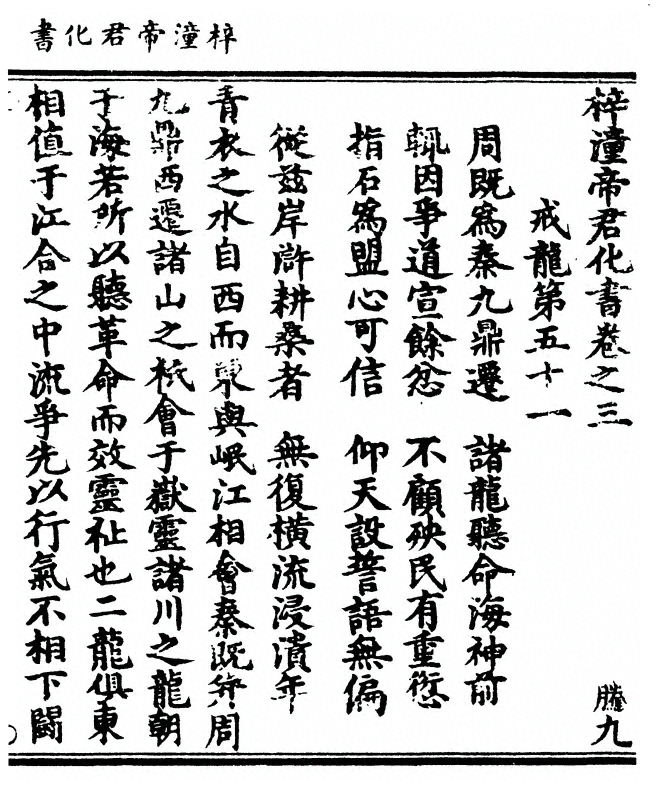 梓潼帝君化書
梓潼帝君化書卷之三 騰九
戒龍第五十一
周既爲秦九鼎遷 諸龍聽命海神前
輒因爭道宣餘忿 不顧殃民有重愆
指石爲盟心可信 仰天設誓語無偏
從茲岸滸耕桑者 無復橫流浸潰年
青衣之水自西而東與岷江相會秦既并周
九鼎西遷諸山之祇會于嶽靈諸川之龍朝
于海若所以聽革命而效靈祉也二龍俱東
相值于江合之中流爭先以行氣不相下鬪